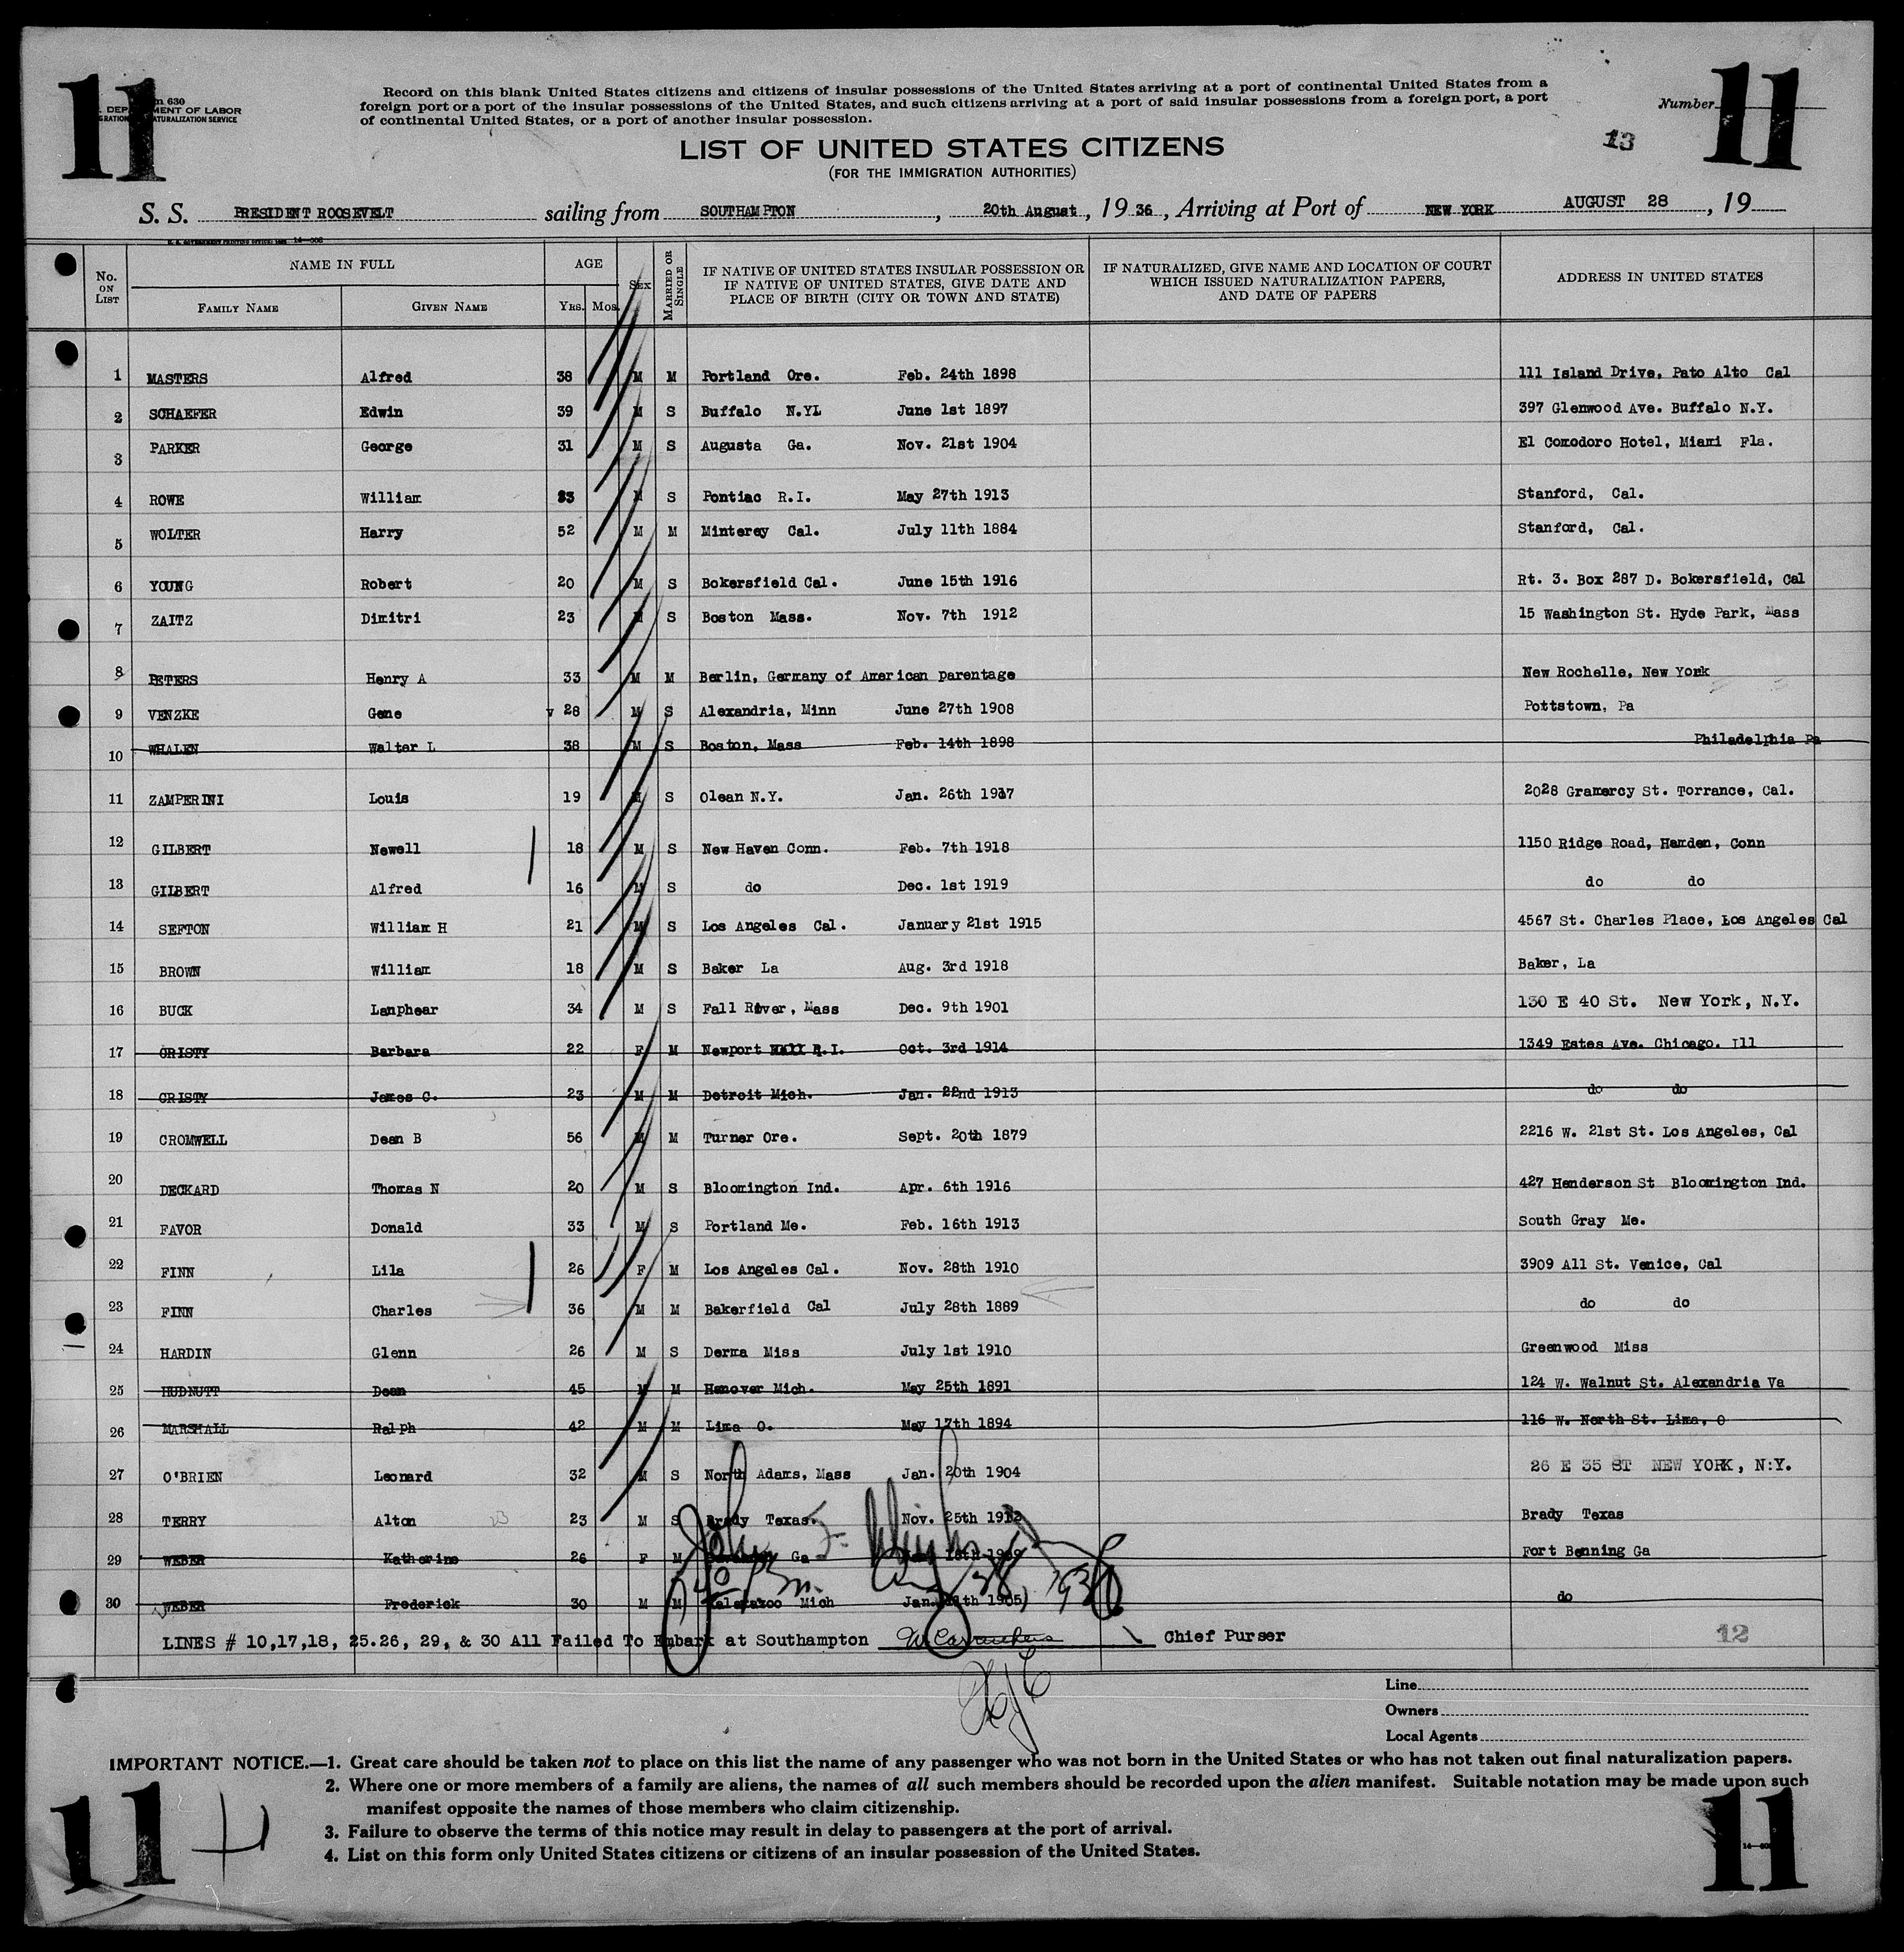 11
11
Form 630
DEPARTMENT OF LABOR
NATURALIZATION SERVICE
Record on this blank United States citizens and citizens of insular possessions of the United States arriving at a port of continental United States from a
foreign port or a port of the insular possessions of the United States, and such citizens arriving at a port of said insular possessions from a foreign port, a port
of continental United States, or a port of another insular possession.
Number
13
LIST OF UNITED STATES CITIZENS
(FOR THE IMMIGRATION AUTHORITIES)
S. S. PRESIDENT ROOSEVELT sailing from SOUTHAMPTON, 20th August, 1936, Arriving at Port of NEW YORK AUGUST 28, 19
No. ON LIST NAME IN FULL FAMILY NAME GIVEN NAME AGE YRS. MOS. SEX MARRIED OR SINGLE IF NATIVE OF UNITED STATES INSULAR POSSESSION OR IF NATIVE OF UNITED STATES, GIVE DATE AND PLACE OF BIRTH (CITY OR TOWN AND STATE) IF NATURALIZED, GIVE NAME AND LOCATION OF COURT WHICH ISSUED NATURALIZATION PAPERS, AND DATE OF PAPERS ADDRESS IN UNITED STATES
1 MASTERS Alfred 38 M M Portland Ore. Feb. 24th 1898 111 Island Drive, Pato Alto Cal
2 SCHAEFER Edwin 39 M S Buffalo N.YL June 1st 1897 397 Glenwood Ave. Buffalo N.Y.
3 PARKER George 31 M S Augusta Ga. Nov. 21st 1904 El Comodoro Hotel, Miami Fla.
4 ROWE William 23 M S Pontiac R.I. May 27th 1913 Stanford, Cal.
5 WOLTER Harry 52 M M Minterey Cal. July 11th 1884 Stanford, Cal.
6 YOUNG Robert 20 M S Bokersfield Cal. June 15th 1916 Rt. 3. Box 287 D. Bokersfield, Cal
7 ZAITZ Dimitri 23 M S Boston Mass. Nov. 7th 1912 15 Washington St. Hyde Park, Mass
8 PETERS Henry A 33 M M Berlin, Germany of American parentage New Rochelle, New York
9 VENZKE Gene 28 M S Alexandria, Minn June 27th 1908 Pottstown, Pa
10 WHALEN Walter L 38 M S Boston, Mass Feb. 14th 1898 Philadelphia Pa
11 ZAMPERINI Louis 19 M S Olean N.Y. Jan. 26th 1917 2028 Gramercy St. Torrance, Cal.
12 GILBERT Newell 18 M S New Haven Conn. Feb. 7th 1918 1150 Ridge Road, Hamden, Conn
13 GILBERT Alfred 16 M S do Dec. 1st 1919 do do
14 SEFTON William H 21 M S Los Angeles Cal. January 21st 1915 4567 St. Charles Place, Los Angeles Cal
15 BROWN William 18 M S Baker La Aug. 3rd 1918 Baker, La
16 BUCK Lanphear 34 M S Fall River, Mass Dec. 9th 1901 130 E 40 St. New York, N.Y.
17 CRISTY Barbara 22 F M Newport R.I. Oct. 3rd 1914 1349 Estes Ave. Chicago. Ill
18 CRISTY James C. 23 M M Detroit Mich. Jan. 22nd 1913 do do
19 CROMWELL Dean B 56 M M Turner Ore. Sept. 20th 1879 2216 W. 21st St. Los Angeles, Cal
20 DECKARD Thomas N 20 M S Bloomington Ind. Apr. 6th 1916 427 Henderson St Bloomington Ind.
21 FAVOR Donald 33 M S Portland Me. Feb. 16th 1913 South Gray Me.
22 FINN Lila 26 F M Los Angeles Cal. Nov. 28th 1910 3909 All St. Venice, Cal
23 FINN Charles 36 M M Bakerfield Cal July 28th 1889 do do
24 HARDIN Glenn 26 M S Derma Miss July 1st 1910 Greenwood Miss
25 HUDNUTT Dean 45 M M Hanover Mich. May 25th 1891 124 W. Walnut St. Alexandria Va
26 MARSHALL Ralph 42 M M Lima O. May 17th 1894 116 W. North St. Lima, O
27 O'BRIEN Leonard 32 M S North Adams, Mass Jan. 20th 1904 26 E 35 ST NEW YORK, N:Y.
28 TERRY Alton 23 M S Brady Texas. Nov. 25th 1912 Brady Texas
29 WEBER Katherine 26 F M Ga Fort Benning Ga
30 WEBER Frederick 30 M M Kalamazoo Mich Jan. 1905 do
LINES # 10,17,18, 25.26, 29, & 30 All Failed To Embark at Southampton Chief Purser
12
Line
Owners
Local Agents
IMPORTANT NOTICE.—1. Great care should be taken not to place on this list the name of any passenger who was not born in the United States or who has not taken out final naturalization papers.
2. Where one or more members of a family are aliens, the names of all such members should be recorded upon the alien manifest. Suitable notation may be made upon such
manifest opposite the names of those members who claim citizenship.
3. Failure to observe the terms of this notice may result in delay to passengers at the port of arrival.
4. List on this form only United States citizens or citizens of an insular possession of the United States.
11
11